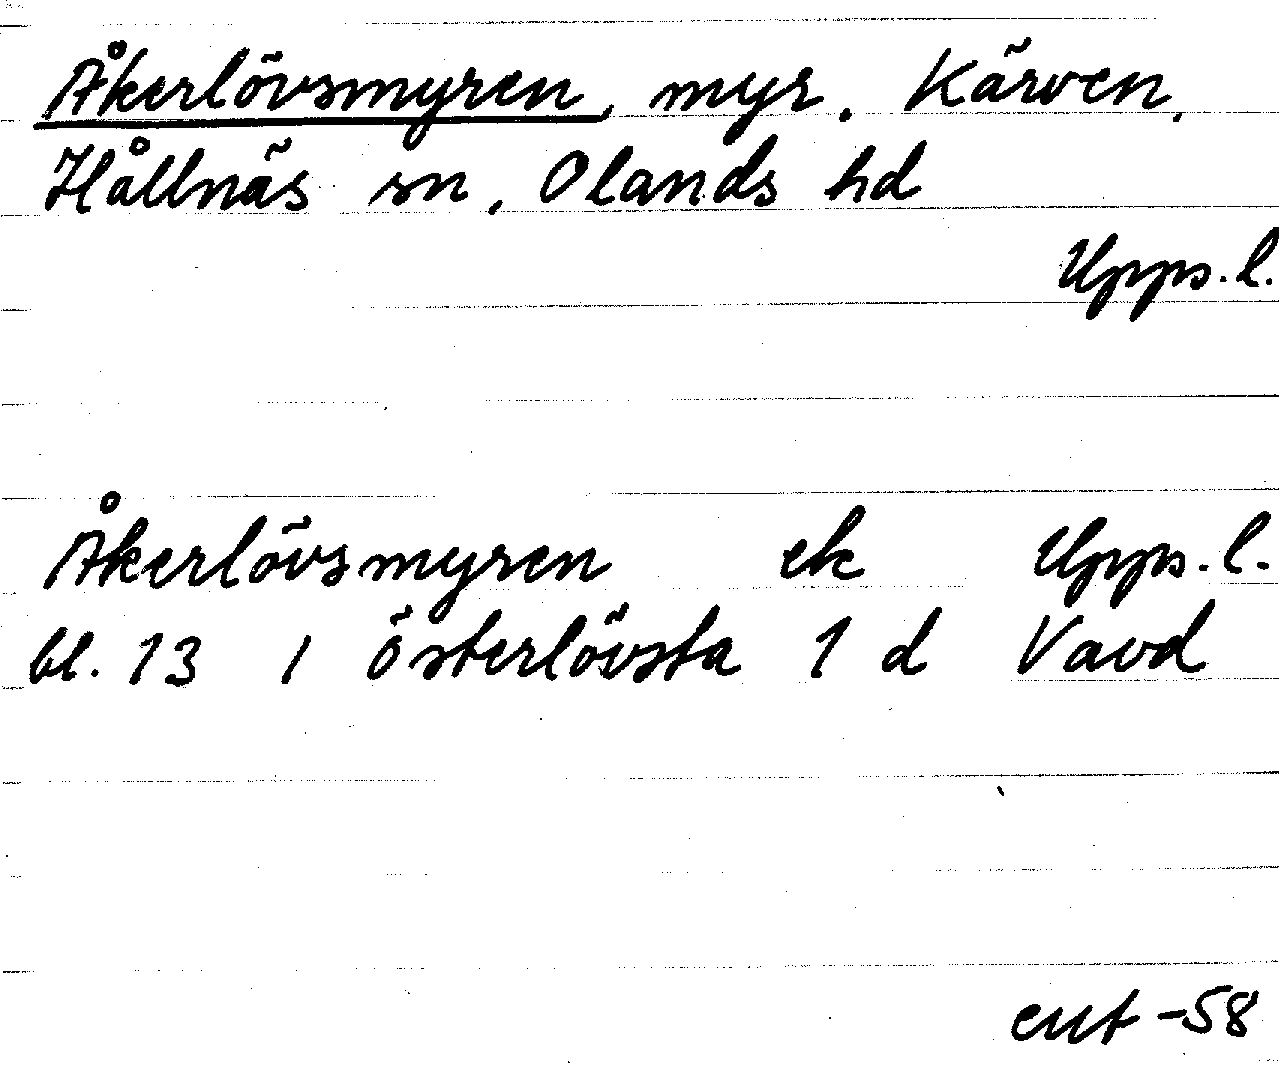 Åkerlövsmyren, myr. Kärven,
Hållnäs sn, Olands hd
Upps. l.
Åkerlövsmyren ek Upps. l.
bl. 13 1 österlövsta 1 d Vavd
ent -58